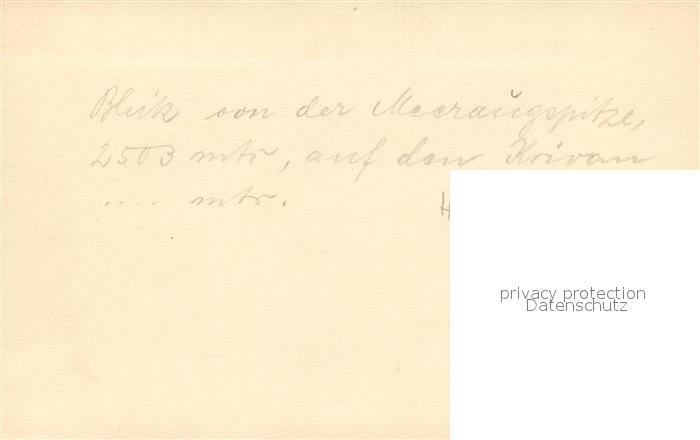 Blick von der Meeraugspitze,
2503 mtr, auf den Krivan
.... mtr.
privacy protection
Datenschutz